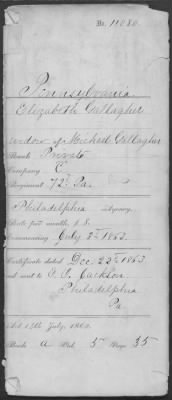 No. 11080.
Pennsylvania
Elizabeth Gallagher
widow of Michael Gallagher
Rank Private
Company E
Regiment 72d Pa
Philadelphia Agency.
Rate per month, $ 8.
Commencing July 3rd 1863.
Certificate dated Dec 22d 1863
and sent to
Philadelphia
Pa
Act 14th July, 1862.
Book A Vol. 5 Page 35